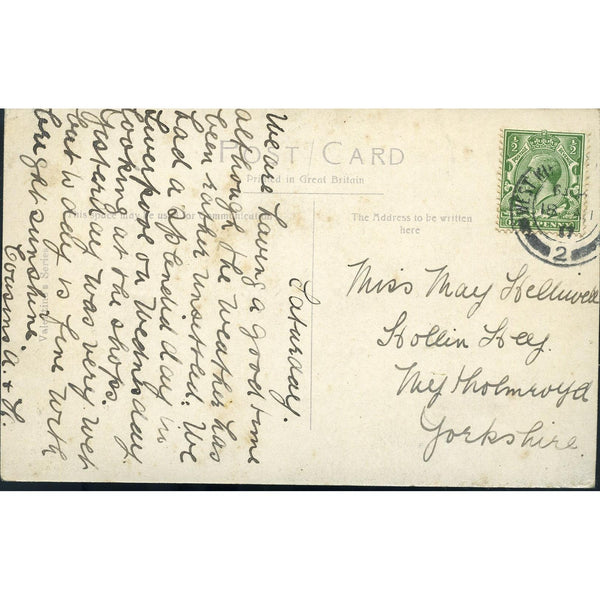 POST CARD
Printed in Great Britain
This space may be used for Communication
The Address to be written
here
Valentine's Series
Saturday.
We are having a good time
although the weather has
been rather unsettled. We
had a splendid day in
Liverpool on Wednesday
looking at the shops.
Yesterday was very wet
but to day is fine with
bright sunshine.
Cousins A. & H.
Miss May Helliwell
Hollin Hey
Mytholmroyd
Yorkshire.
½
½
2